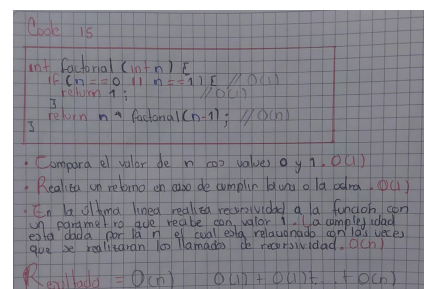 Code 15
int factorial (int n) {
if (n == 0 || n == 1) { // O(1)
return 1; // O(1)
}
return n * factorial (n-1); // O(n)
}
• Compara el valor de n cos values 0 y 1. O(1)
• Realiza un retorno en caso de cumplir la una o la otra. O(1)
• En la última linea realiza recursividad a la funcion con
un parametro que recibe con valor 1. La complesidad
esta dada por la n el cual esta relacionado con las veces
que se realizaran los llamados de recursividad. O(n)
Resultado = O(n) O(1) + O(1) + . . + O(n)